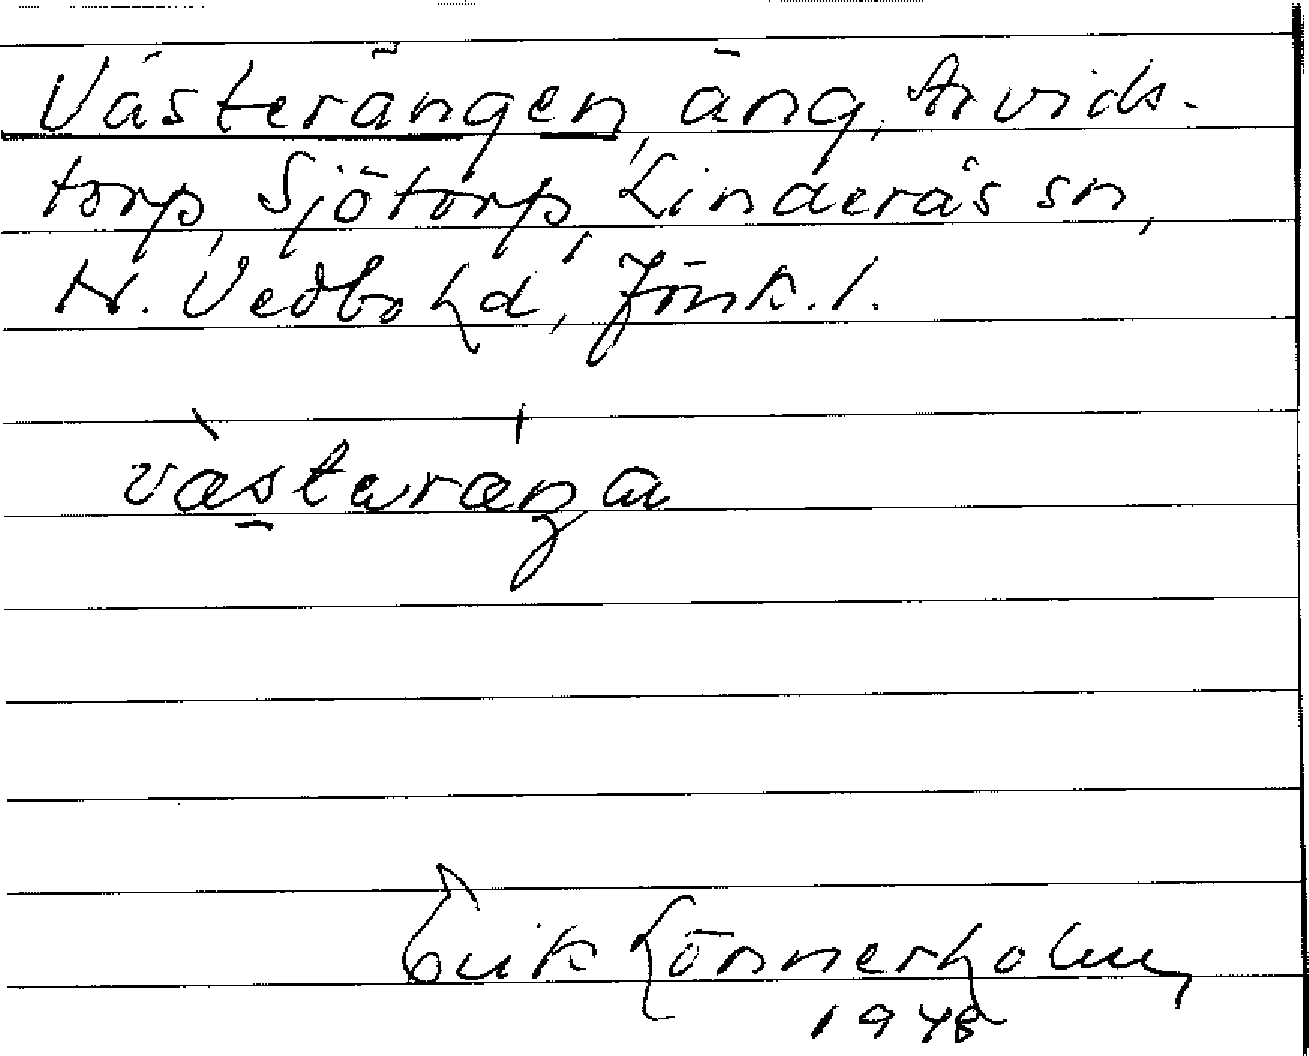 Västerängen, äng, Arvids-
torp, Sjötorp, Linderås sn,
N. Vedbo hd, Jönk. l.
västəräŋa
Erik Lönnerholm
1948